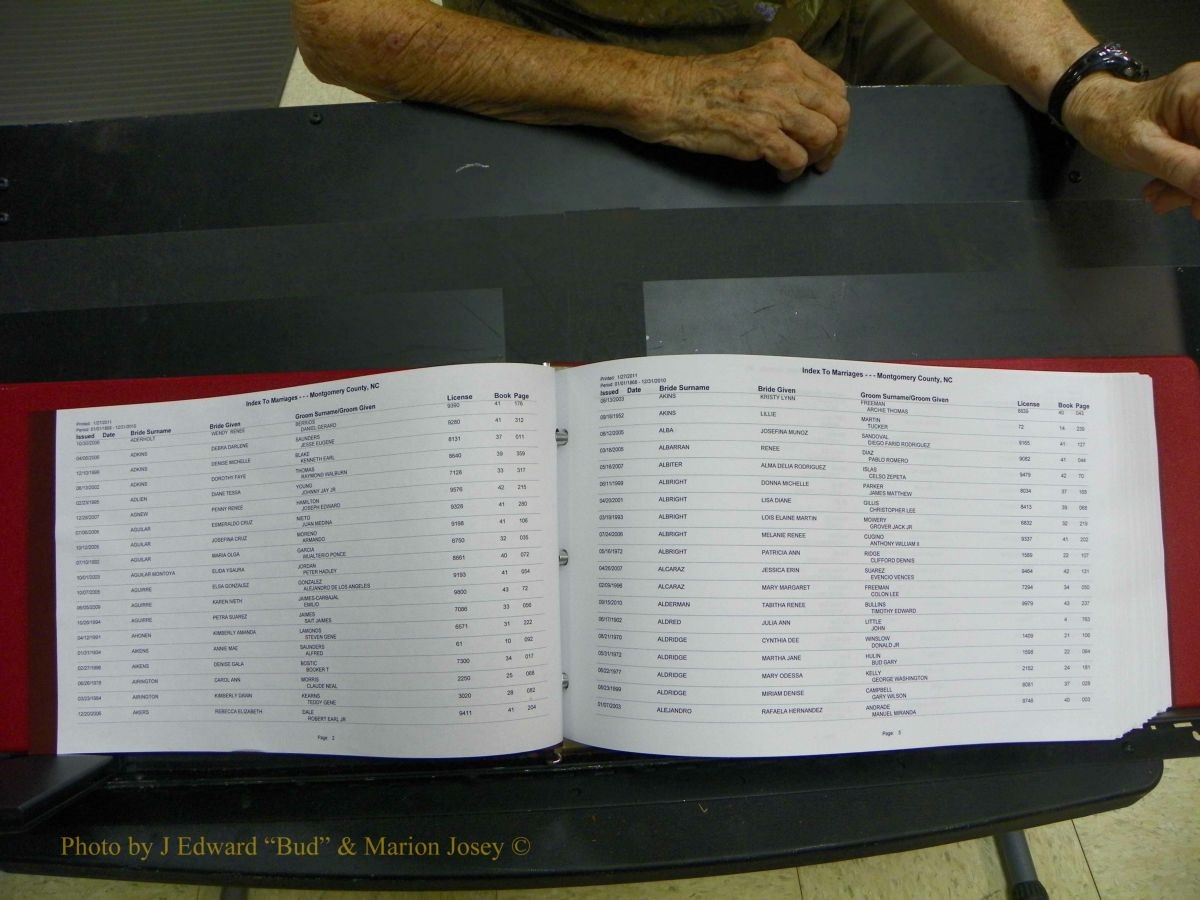 Index To Marriages - - - Montgomery County, NC
Printed: 1/27/2011
Period: 01/01/1868 - 12/31/2010
Issued Date Bride Surname Bride Given Groom Surname/Groom Given License Book Page
10/30/2006 ADERHOLT WENDY RENEE BERRIOS 9390 41 176
DANIEL GERARD
04/05/2006 ADKINS DEBRA DARLENE SAUNDERS 9280 41 312
JESSE EUGENE
12/10/1999 ADKINS DENISE MICHELLE BLAKE 8131 37 011
KENNETH EARL
06/13/2002 ADKINS DOROTHY FAYE THOMAS 8640 39 359
RAYMOND WALBURN
02/23/1995 ADLIEN DIANE TESSA YOUNG 7126 33 317
JOHNNY JAY JR
12/28/2007 AGNEW PENNY RENEE HAMILTON 9576 42 215
JOSEPH EDWARD
07/06/2006 AGUILAR ESMERALDO CRUZ NIETO 9328 41 280
JUAN MEDINA
10/12/2005 AGUILAR JOSEFINA CRUZ MORENO 9198 41 106
ARMANDO
07/10/1992 AGUILAR MARIA OLGA GARCIA 6750 32 035
WUALTERIO PONCE
10/01/2003 AGUILAR MONTOYA ELIDA YSAURA JORDAN 8861 40 072
PETER HADLEY
10/07/2005 AGUIRRE ELSA GONZALEZ GONZALEZ 9193 41 054
ALEJANDRO DE LOS ANGELES
06/05/2009 AGUIRRE KAREN IVETH JAIMES-CARBAJAL 9800 43 72
EMILIO
10/26/1994 AGUIRRE PETRA SUAREZ JAIMES 7086 33 050
SAIT JAIMES
04/12/1991 AHONEN KIMBERLY AMANDA LAMONDS 6571 31 222
STEVEN GENE
01/31/1934 AIKENS ANNIE MAE SAUNDERS 61 10 092
ALFRED
02/27/1996 AIKENS DENISE GALA BOSTIC 7300 34 017
BOOKER T
06/26/1978 AIRINGTON CAROL ANN MORRIS 2250 25 068
CLAUDE NEAL
03/23/1984 AIRINGTON KIMBERLY DAWN KEARNS 3020 28 082
TEDDY GENE
12/20/2006 AKERS REBECCA ELIZABETH DALE 9411 41 204
ROBERT EARL JR
Page 2
Index To Marriages - - - Montgomery County, NC
Printed: 1/27/2011
Period: 01/01/1868 - 12/31/2010
Issued Date Bride Surname Bride Given Groom Surname/Groom Given License Book Page
08/13/2003 AKINS KRISTY LYNN FREEMAN 8839 40 043
ARCHIE THOMAS
09/18/1952 AKINS LILLIE MARTIN 72 14 239
TUCKER
08/12/2005 ALBA JOSEFINA MUNOZ SANDOVAL 9165 41 127
DIEGO FARID RODRIGUEZ
03/18/2005 ALBARRAN RENEE DIAZ 9082 41 044
PABLO ROMERO
05/16/2007 ALBITER ALMA DELIA RODRIGUEZ ISLAS 9479 42 70
CELSO ZEPETA
06/11/1999 ALBRIGHT DONNA MICHELLE PARKER 8034 37 168
JAMES MATTHEW
04/20/2001 ALBRIGHT LISA DIANE GILLIS 8413 39 068
CHRISTOPHER LEE
03/19/1993 ALBRIGHT LOIS ELAINE MARTIN MOWERY 6832 32 219
GROVER JACK JR
07/24/2006 ALBRIGHT MELANIE RENEE CUGINO 9337 41 202
ANTHONY WILLIAM II
05/16/1972 ALBRIGHT PATRICIA ANN RIDGE 1589 22 107
CLIFFORD DENNIS
04/26/2007 ALCARAZ JESSICA ERIN SUAREZ 9464 42 131
EVENCIO VENCES
02/09/1996 ALCARAZ MARY MARGARET FREEMAN 7294 34 050
COLON LEE
09/15/2010 ALDERMAN TABITHA RENEE BULLINS 9979 43 237
TIMOTHY EDWARD
06/17/1902 ALDRED JULIA ANN LITTLE 4 763
JOHN
08/21/1970 ALDRIDGE CYNTHIA DEE WINSLOW 1409 21 100
DONALD JR
05/31/1972 ALDRIDGE MARTHA JANE HULIN 1598 22 084
BUD GARY
06/22/1977 ALDRIDGE MARY ODESSA KELLY 2152 24 181
GEORGE WASHINGTON
08/23/1999 ALDRIDGE MIRIAM DENISE CAMPBELL 8081 37 028
GARY WILSON
01/07/2003 ALEJANDRO RAFAELA HERNANDEZ ANDRADE 8746 40 003
MANUEL MIRANDA
Page 3
Photo by J Edward “Bud” & Marion Josey ©